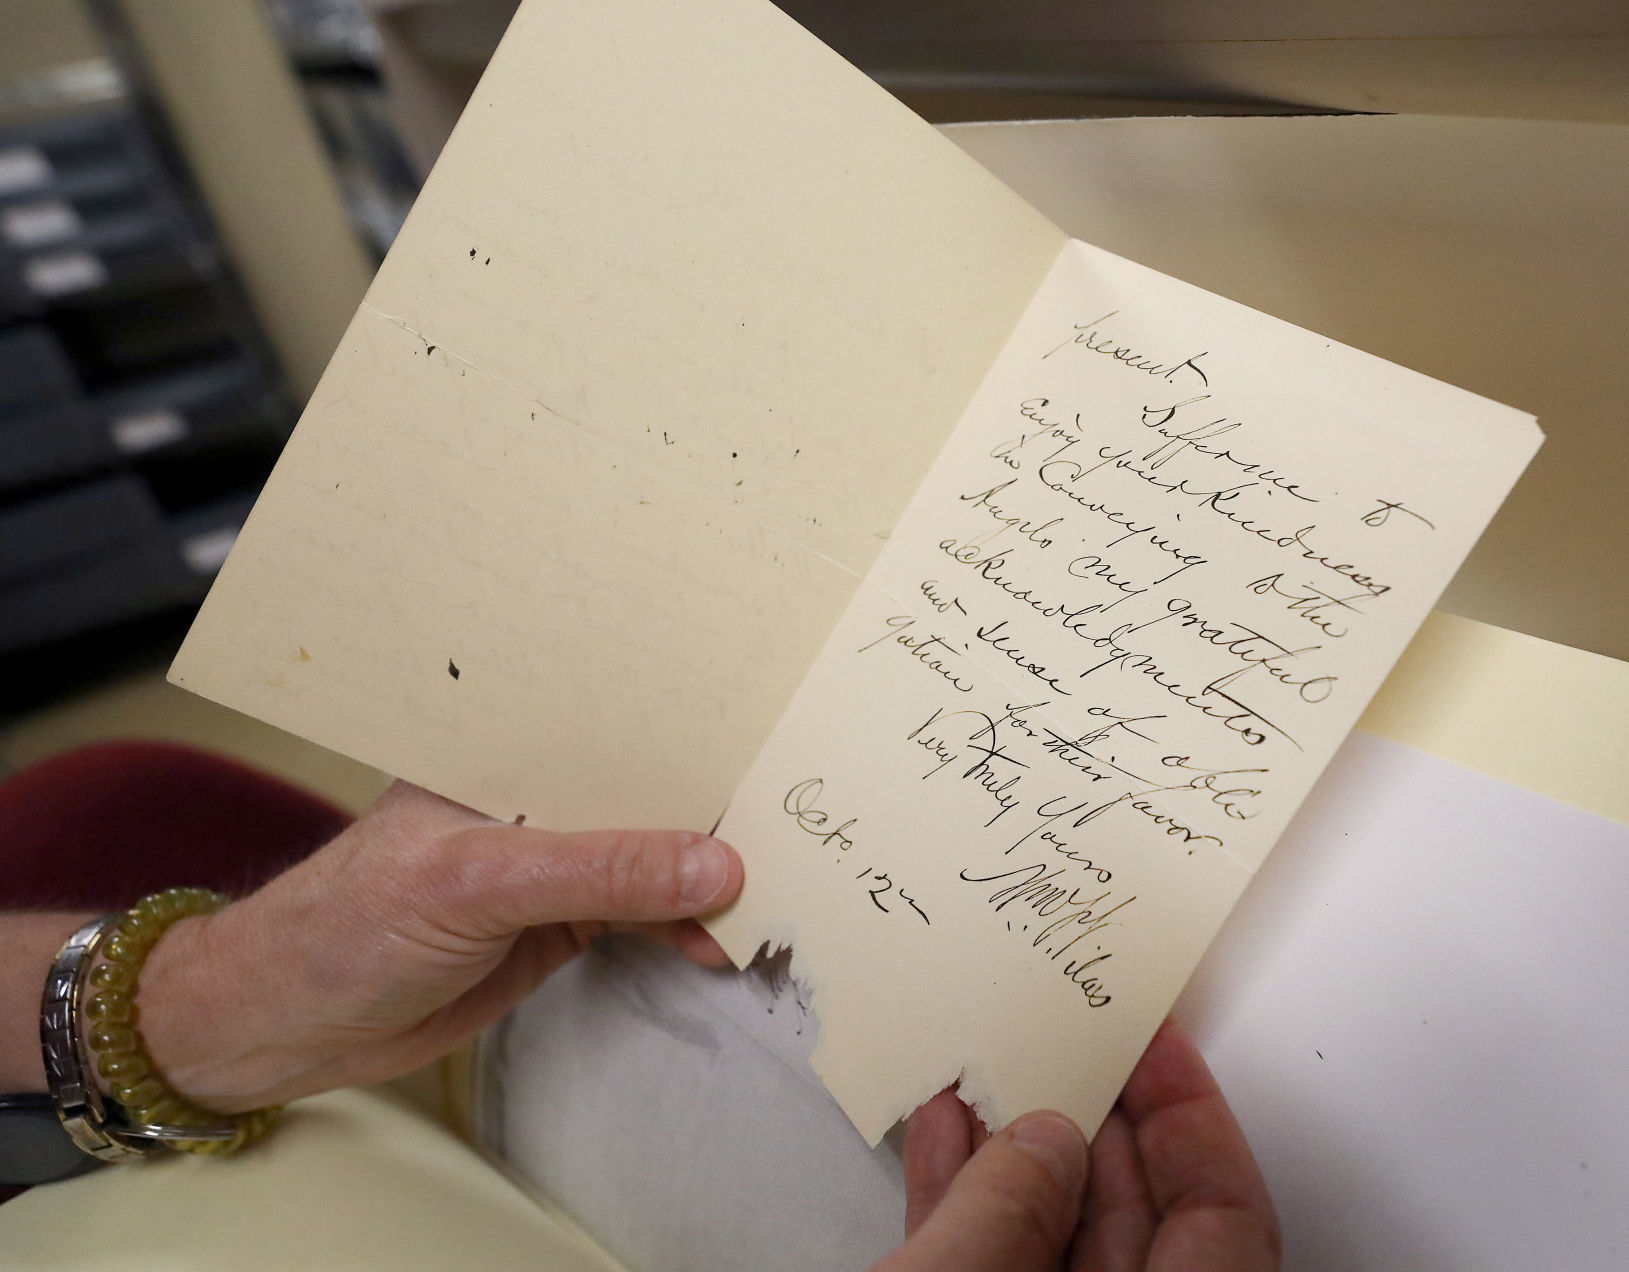 present.
Suffer me to
enjoy your Kindness
in Conveying to the
Angelo. my grateful
acknowledgments
and sense of obli-
gation for their favor.
Very truly Yours
Octo. 12